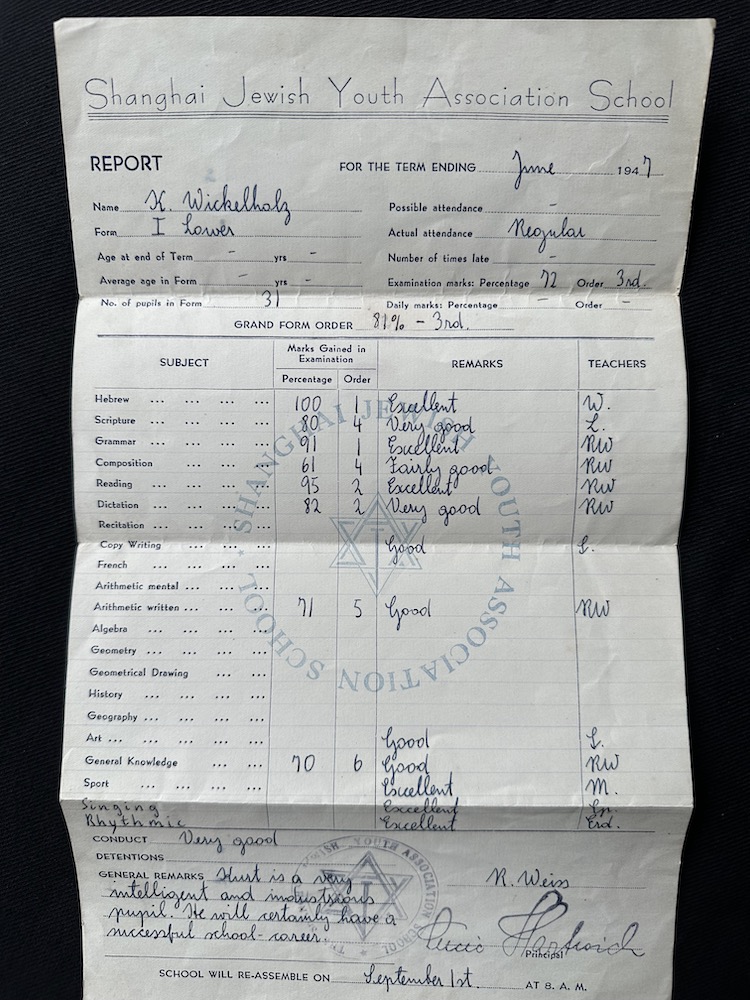 Shanghai Jewish Youth Association School
REPORT FOR THE TERM ENDING June 1947
Name K. Wickelholz Possible attendance -
Form I Lower Actual attendance Regular
Age at end of Term - yrs - Number of times late -
Average age in Form - yrs - Examination marks: Percentage 72 Order 3rd.
No. of pupils in Form 31 Daily marks: Percentage - Order -
GRAND FORM ORDER 81% - 3rd.
SUBJECT Marks Gained in Examination REMARKS TEACHERS
Percentage Order
Hebrew ... ... ... ... 100 1 Excellent W.
Scripture ... ... ... ... 80 4 Very good L.
Grammar ... ... ... ... 91 1 Excellent RW
Composition ... ... ... 61 4 Fairly good RW
Reading ... ... ... ... 95 2 Excellent RW
Dictation ... ... ... ... 82 2 Very good RW
Recitation ... ... ... ...
Copy Writing ... ... ... Good
French ... ... ... ...
Arithmetic mental ... ... ...
Arithmetic written ... ... ... 71 5 Good RW
Algebra ... ... ... ...
Geometry ... ... ... ...
Geometrical Drawing ... ...
History ... ... ... ...
Geography ... ... ... ...
Art ... ... ... ... ... Good
General Knowledge ... ... ... 70 6 Good RW
Sport ... ... ... ... Excellent M.
Singing Excellent
Rhythmic Excellent Erd.
SHANGHAI JEWISH YOUTH ASSOCIATION SCHOOL
CONDUCT Very good
DETENTIONS
GENERAL REMARKS Kurt is a very
intelligent and industrious
pupil. He will certainly have a
successful school-career.
R. Weiss
Principal
JEWISH YOUTH ASSOCIATION SCHOOL
SCHOOL WILL RE-ASSEMBLE ON September 1st. AT 8. A. M.